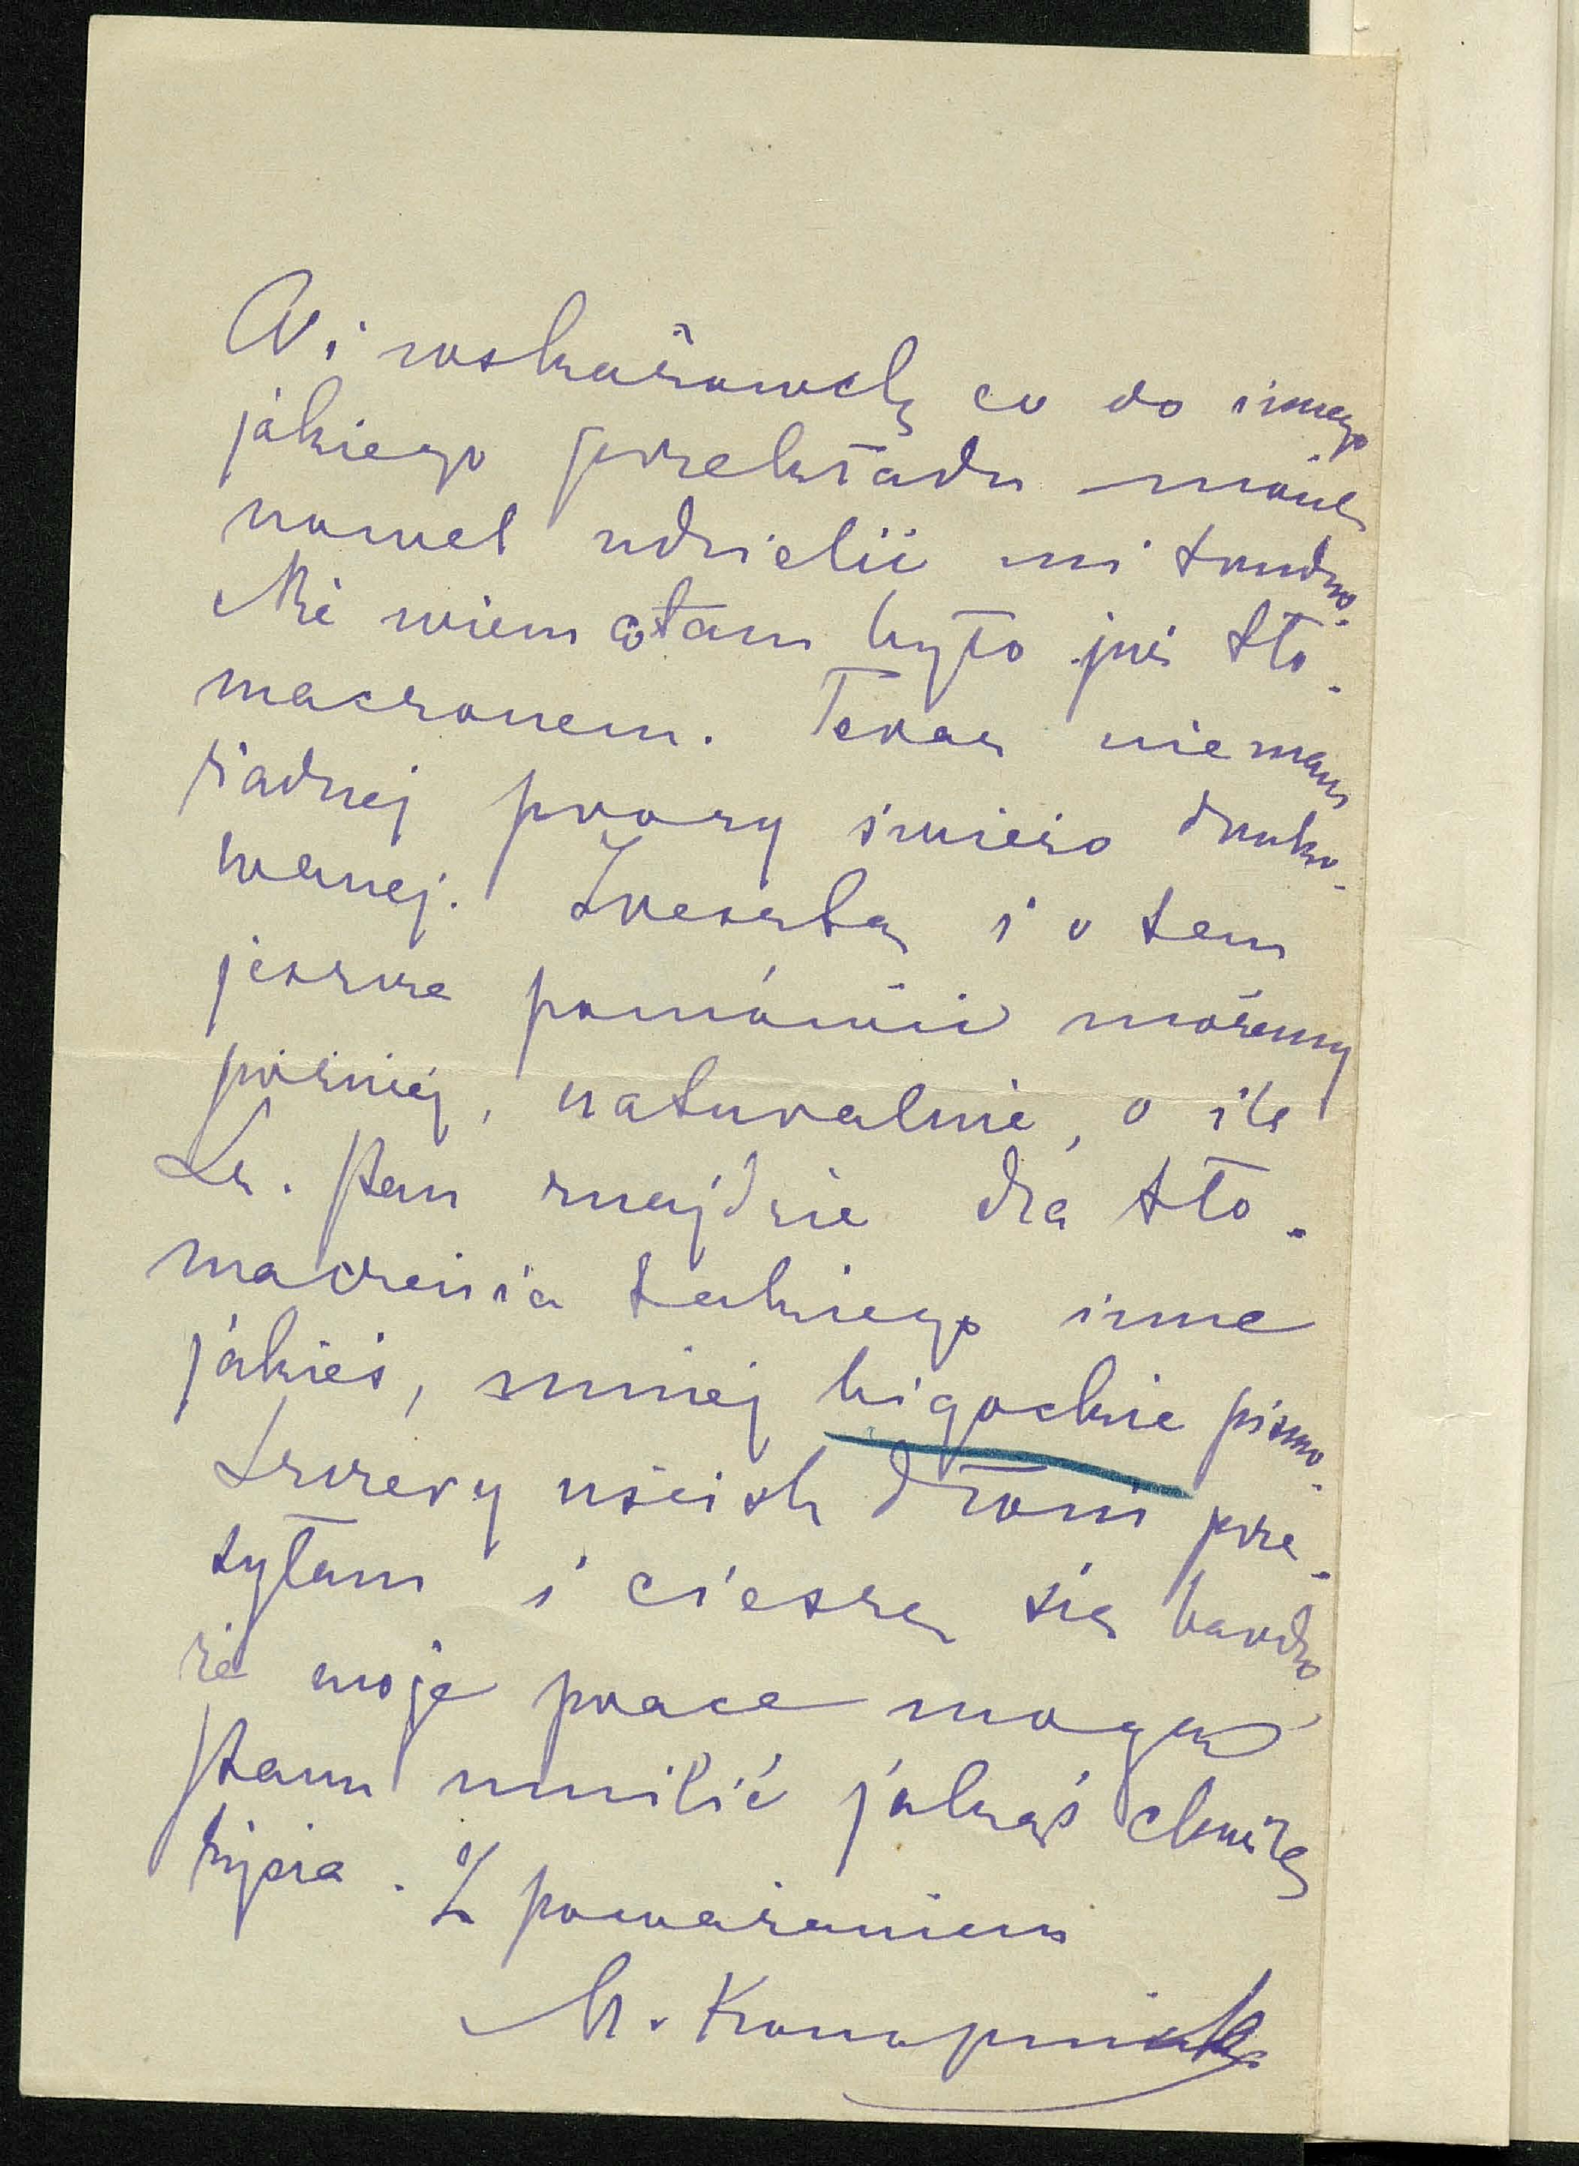 Wskazówek co do innego
jakiego przekładu moich
nowel udzielić mi trudno.
Nie wiem co tam było już tło-
maczonem. Teraz nie mam
żadnej prozy świeżo druko-
wanej. Zresztą i o tem
jeszcze pomówić możemy
później, naturalnie, o ile
Sz. Pan znajdzie dla tło-
maczenia takiego inne
jakieś, mniej bigockie pismo.
Szczery uścisk dłoni prze-
syłam i cieszę się bardzo
że moje prace mogą
Panu umilić jakąś chwilę
życia. Z poważaniem
M. Konopnicka